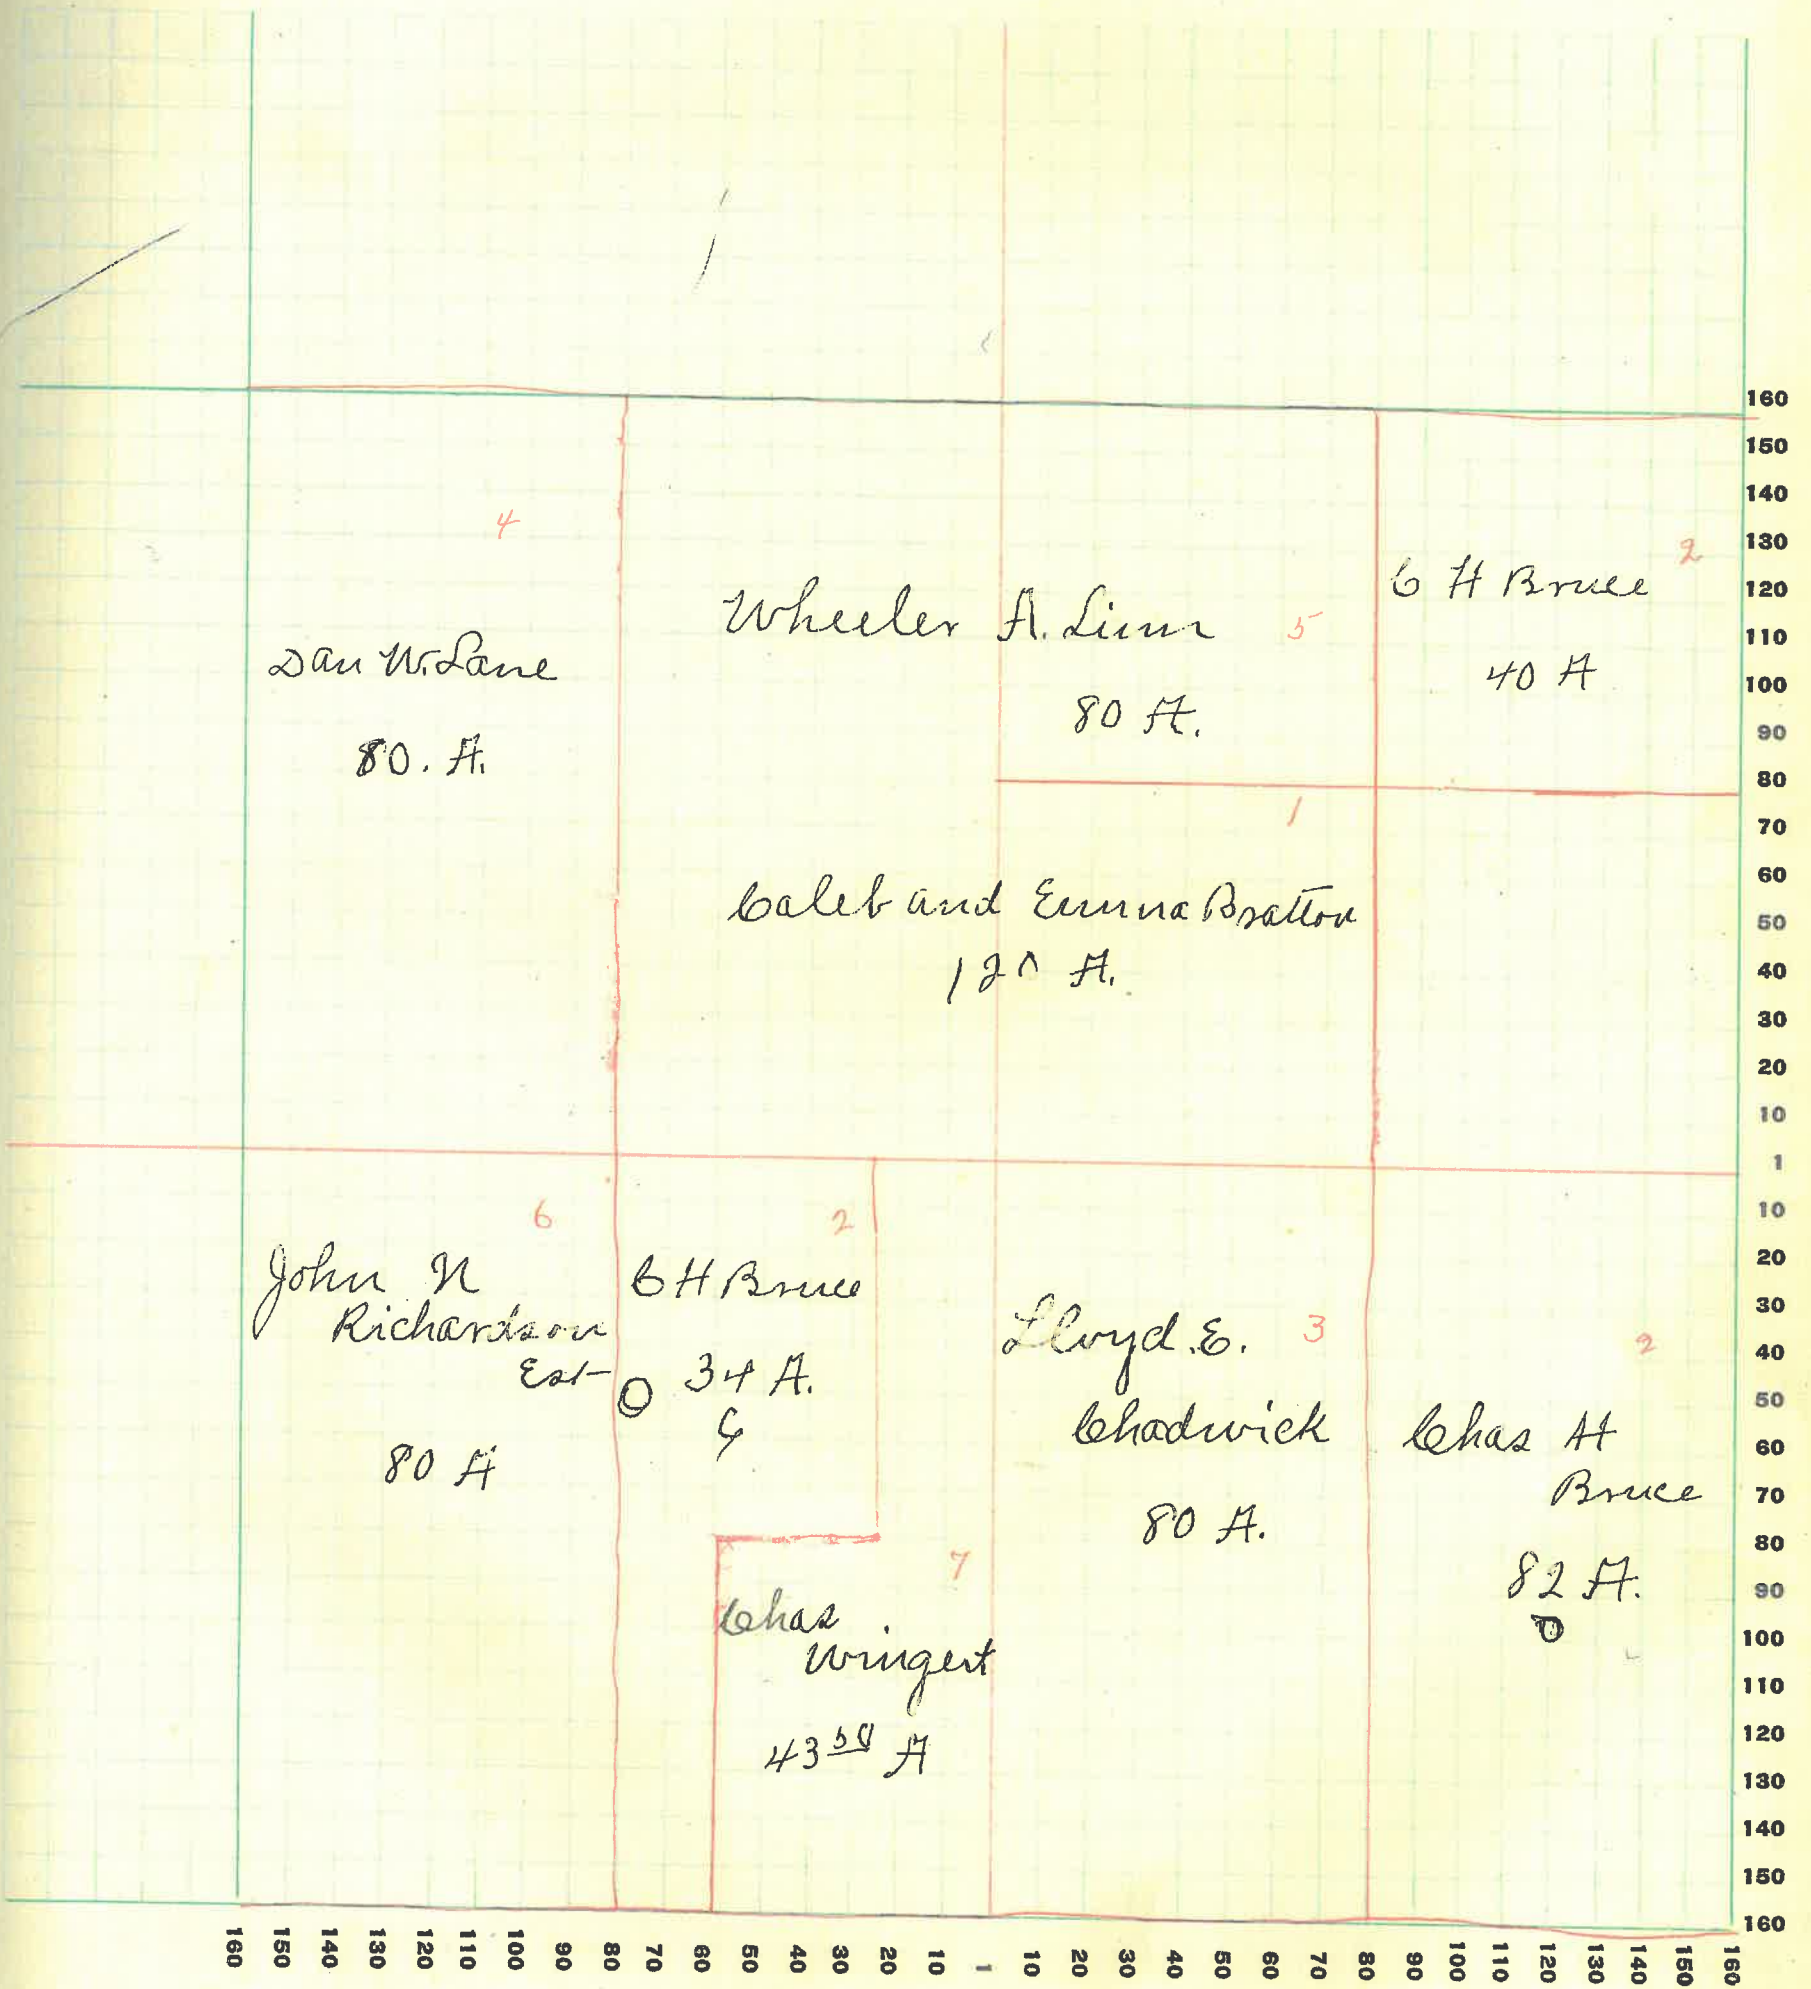 4
Dan W. Lane
80. A.
Wheeler A. Linn
5
80 A.
2
C H Bruce
40 A
1
Caleb and Emma Bratton
120 A.
6
John N
Richardson
Est
80 A
2
C H Bruce
34 A.
7
Chas
Wingert
43 50 A
Lloyd. E.
3
Chadwick
80 A.
2
Chas H
Bruce
82 A.
160
150
140
130
120
110
100
90
80
70
60
50
40
30
20
10
1
10
20
30
40
50
60
70
80
90
100
110
120
130
140
150
160
160 150 140 130 120 110 100 90 80 70 60 50 40 30 20 10 1 10 20 30 40 50 60 70 80 90 100 110 120 130 140 150 160